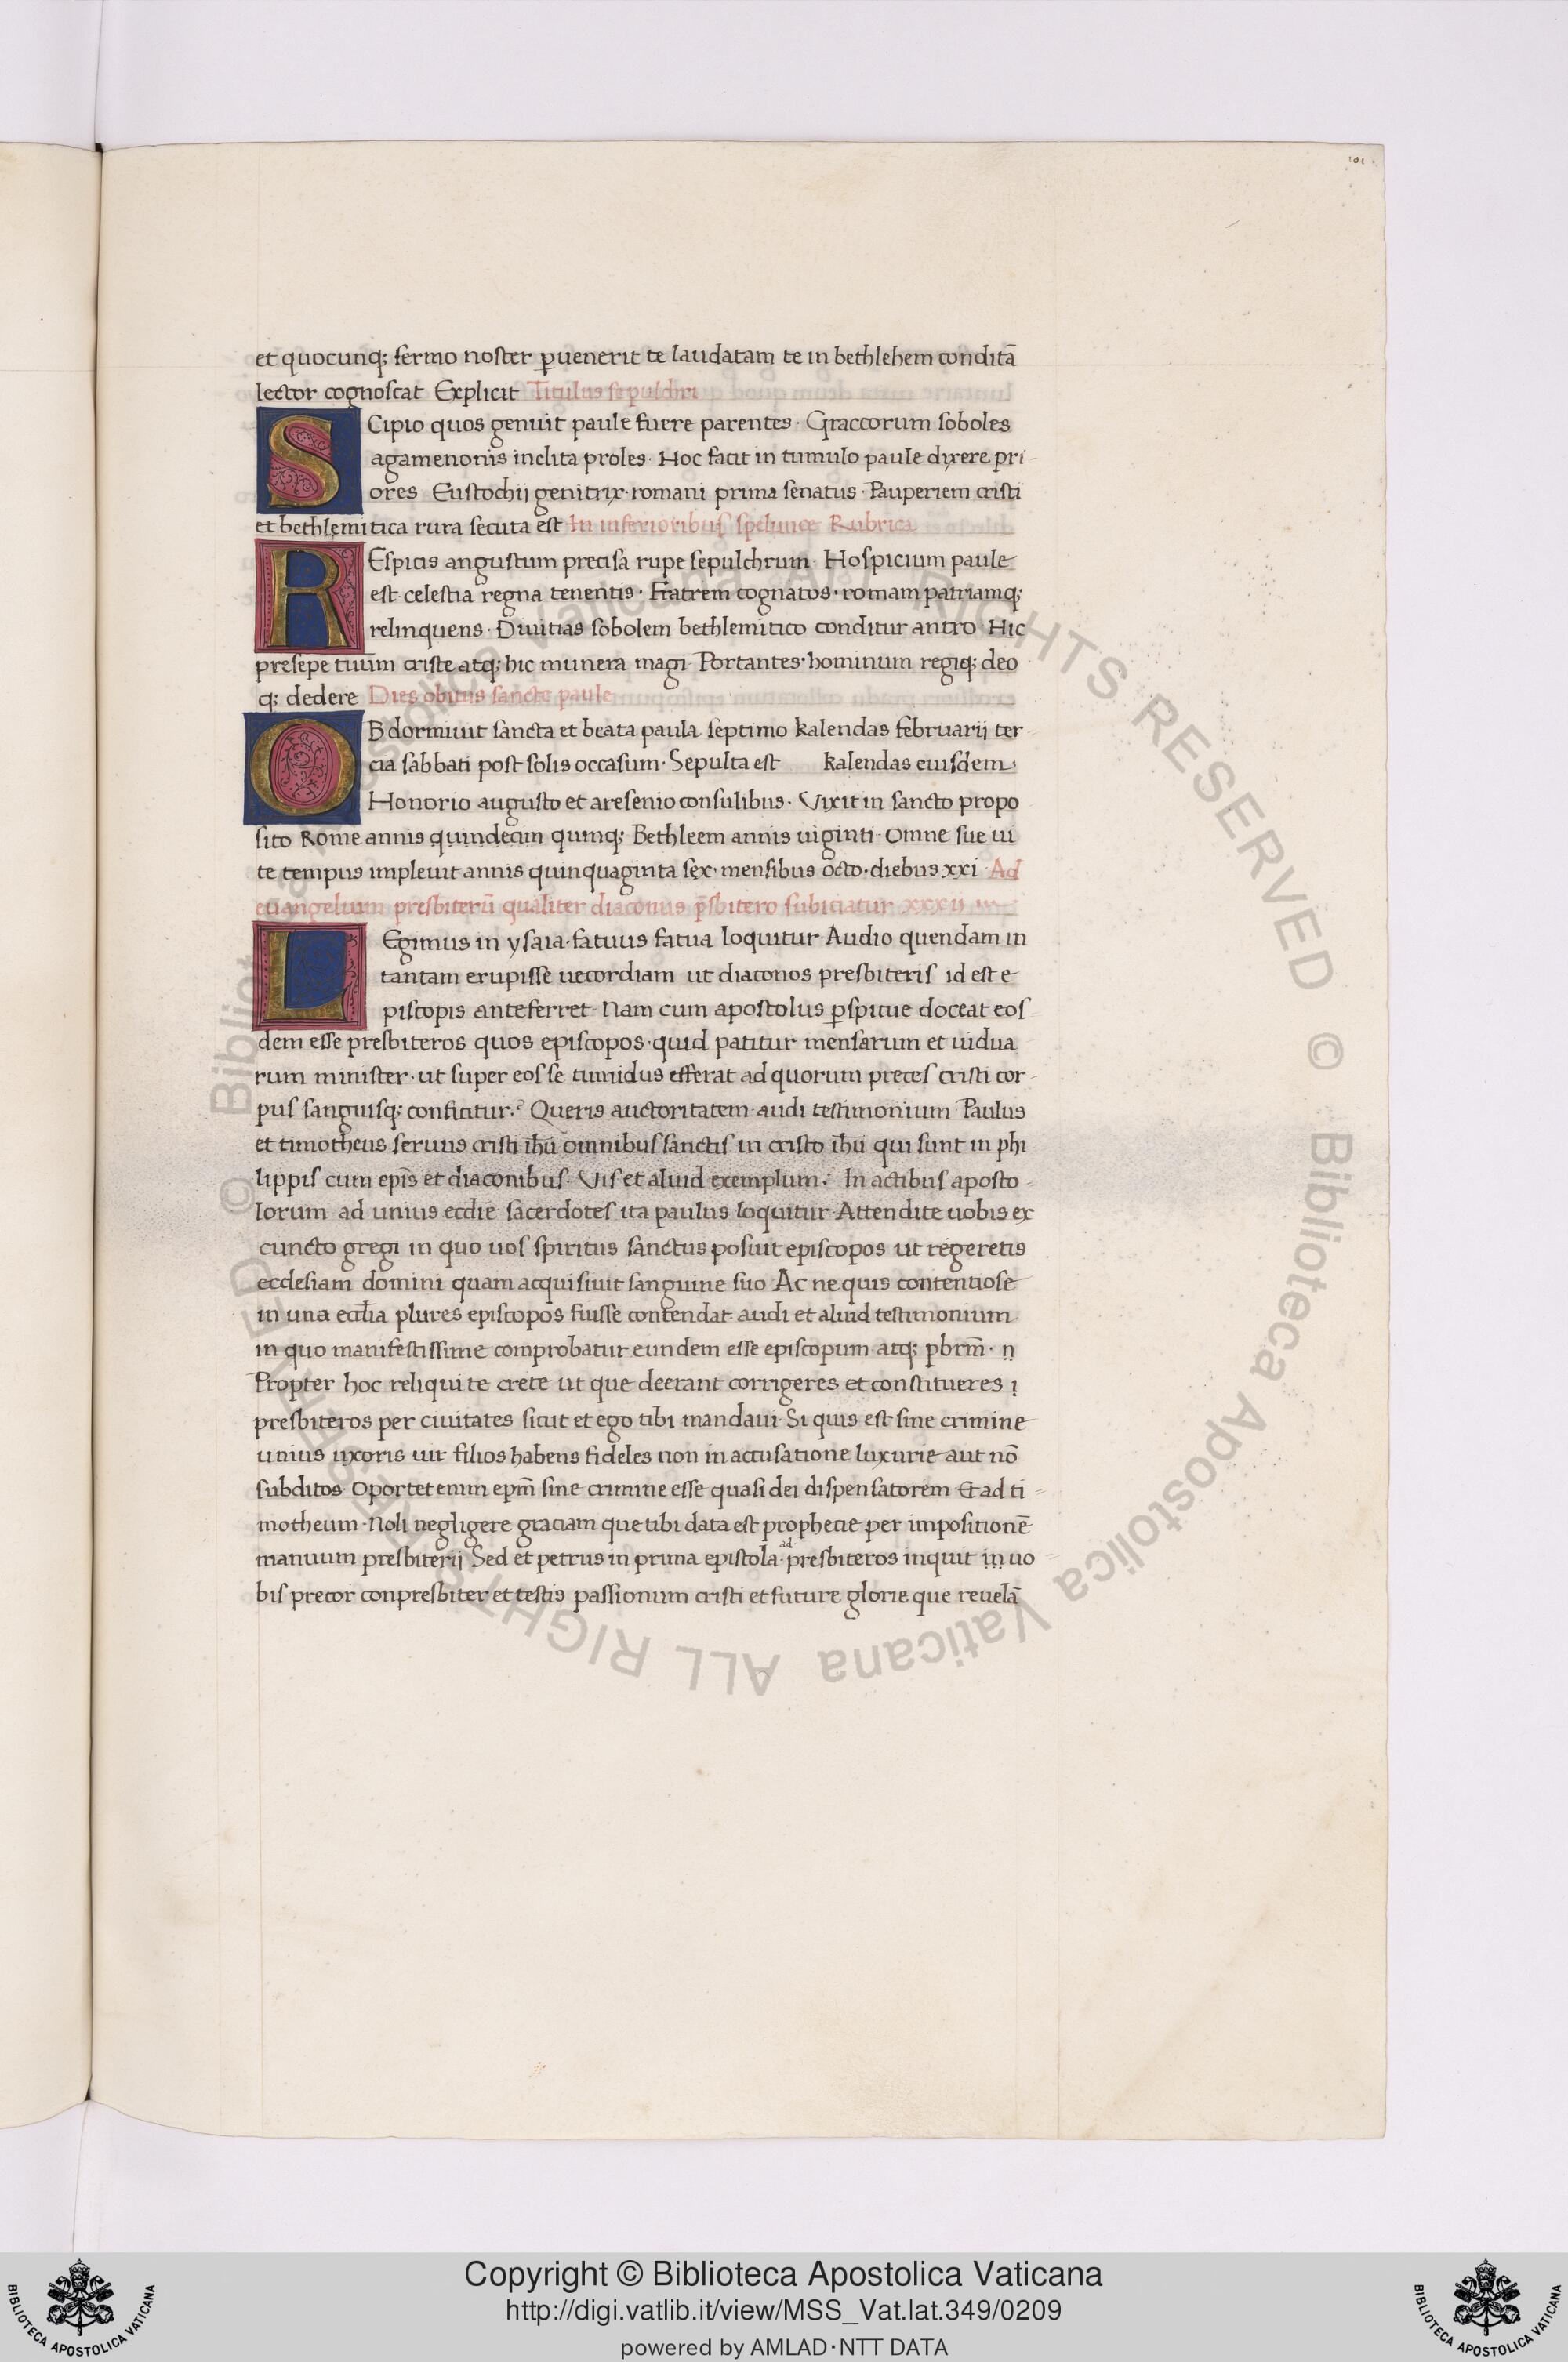 101
et quocunq; sermo noster ꝑuenerit te laudatam te in bethlehem conditã
lector cognoscat Explicit Titulus sepulchri
SCipio quos genuit paule fuere parentes · Graccorum soboles
agamenonis inclita proles · Hoc facit in tumulo paule dixere pri-
ores Eustochij genitrix · romani prima senatus · Pauperiem cristi
et bethlemitica rura secuta est In inferioribus spelunce Rubrica
REspicis angustum precisa rupe sepulchrum · Hospicium paule
est celestia regna tenentis · Fratrem cognatos · romam patriamq;
relinquens · Divitias sobolem bethlemitico conditur antro Hic
presepe tuum criste atq; hic munera magi Portantes · hominum regiq; deo
q; dedere Dies obitus sancte paule
OBdormiuit sancta et beata paula septimo kalendas februarij ter-
cia sabbati post solis occasum · Sepulta est kalendas eiusdem ·
Honorio augusto et aresenio consulibus · Vixit in sancto propo
sito Rome annis quindecim quinq; Bethleem annis uiginti · Omne sue ui
te tempus impleuit annis quinquaginta sex · mensibus octo · diebus xxi · Ad
euangelium presbiterũ qualiter diaconus p̃sbitero subiciatur xxxii
LEgimus in ysaia · fatuus fatua loquitur Audio quendam in
tantam erupisse uecordiam ut diaconos presbiteris id est e
piscopis anteferret Nam cum apostolus ꝑspicue doceat eos
dem esse presbiteros quos episcopos · quid patitur mensarum et uidua
rum minister · ut super eos se tumidus efferat ad quorum preces cristi cor-
pus sanguisq; conficitur? Queris auctoritatem audi testimonium Paulus
et timotheus seruus cristi ihũ omnibus sanctis in cristo ihũ qui sunt in phi
lippis cum epĩs et diaconibus · Vis et aliud exemplum? In actibus aposto-
lorum ad unius ecclie sacerdotes ita paulus loquitur Attendite uobis ex
cuncto gregi in quo uos spiritus sanctus posuit episcopos ut regeretis
ecclesiam domini quam acquisiuit sanguine suo Ac ne quis contentiose
in una ecclia plures episcopos fuisse contendat audi et aliud testimonium
in quo manifestissime comprobatur eundem esse episcopum atq; pbrm̃ · n
Propter hoc reliqui te crete ut que deerant corrigeres et constitueres i
presbiteros per ciuitates sicut et ego tibi mandaui · Si quis est sine crimine
unius uxoris uir filios habens fideles non in accusatione luxurie aut nõ
subditos Oportet enim epm̃ sine crimine esse quasi dei dispensatorem Et ad ti-
motheum · Noli negligere graciam que tibi data est prophetie per impositionẽ
manuum presbiterij Sed et petrus in prima epistola · ad presbiteros inquit in uo-
bis precor conpresbiter et testis passionum cristi et future glorie que reuelã
© Biblioteca Apostolica Vaticana ALL RIGHTS RESERVED © Biblioteca Apostolica Vaticana ALL RIGHTS RESERVED
Copyright © Biblioteca Apostolica Vaticana
http://digi.vatlib.it/view/MSS_Vat.lat.349/0209
powered by AMLAD·NTT DATA
BIBLIOTECA APOSTOLICA VATICANA
BIBLIOTECA APOSTOLICA VATICANA